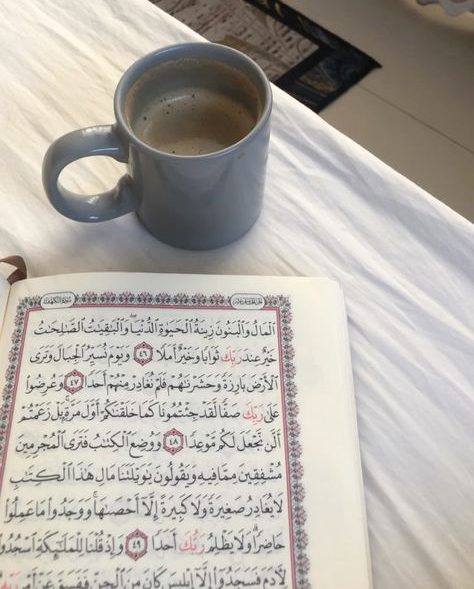 سُورَةُ الكَهْفِ
ٱلْمَالُ وَٱلْبَنُونَ زِينَةُ ٱلْحَيَوٰةِ ٱلدُّنْيَا ۖ وَٱلْبَٰقِيَٰتُ ٱلصَّٰلِحَٰتُ
خَيْرٌ عِندَ رَبِّكَ ثَوَابًا وَخَيْرٌ أَمَلًا ٤٦ وَيَوْمَ نُسَيِّرُ ٱلْجِبَالَ وَتَرَى
ٱلْأَرْضَ بَارِزَةً وَحَشَرْنَٰهُمْ فَلَمْ نُغَادِرْ مِنْهُمْ أَحَدًا ٤٧ وَعُرِضُوا۟
عَلَىٰ رَبِّكَ صَفًّا لَّقَدْ جِئْتُمُونَا كَمَا خَلَقْنَٰكُمْ أَوَّلَ مَرَّةٍۭ ۚ بَلْ زَعَمْتُمْ
أَلَّن نَّجْعَلَ لَكُم مَّوْعِدًا ٤٨ وَوُضِعَ ٱلْكِتَٰبُ فَتَرَى ٱلْمُجْرِمِينَ
مُشْفِقِينَ مِمَّا فِيهِ وَيَقُولُونَ يَٰوَيْلَتَنَا مَالِ هَٰذَا ٱلْكِتَٰبِ
لَا يُغَادِرُ صَغِيرَةً وَلَا كَبِيرَةً إِلَّآ أَحْصَىٰهَا ۚ وَوَجَدُوا۟ مَا عَمِلُوا۟
حَاضِرًا ۗ وَلَا يَظْلِمُ رَبُّكَ أَحَدًا ٤٩ وَإِذْ قُلْنَا لِلْمَلَٰٓئِكَةِ ٱسْجُدُوا۟
لِءَادَمَ فَسَجَدُوٓا۟ إِلَّآ إِبْلِيسَ كَانَ مِنَ ٱلْجِنِّ فَفَسَقَ عَنْ أَمْرِ